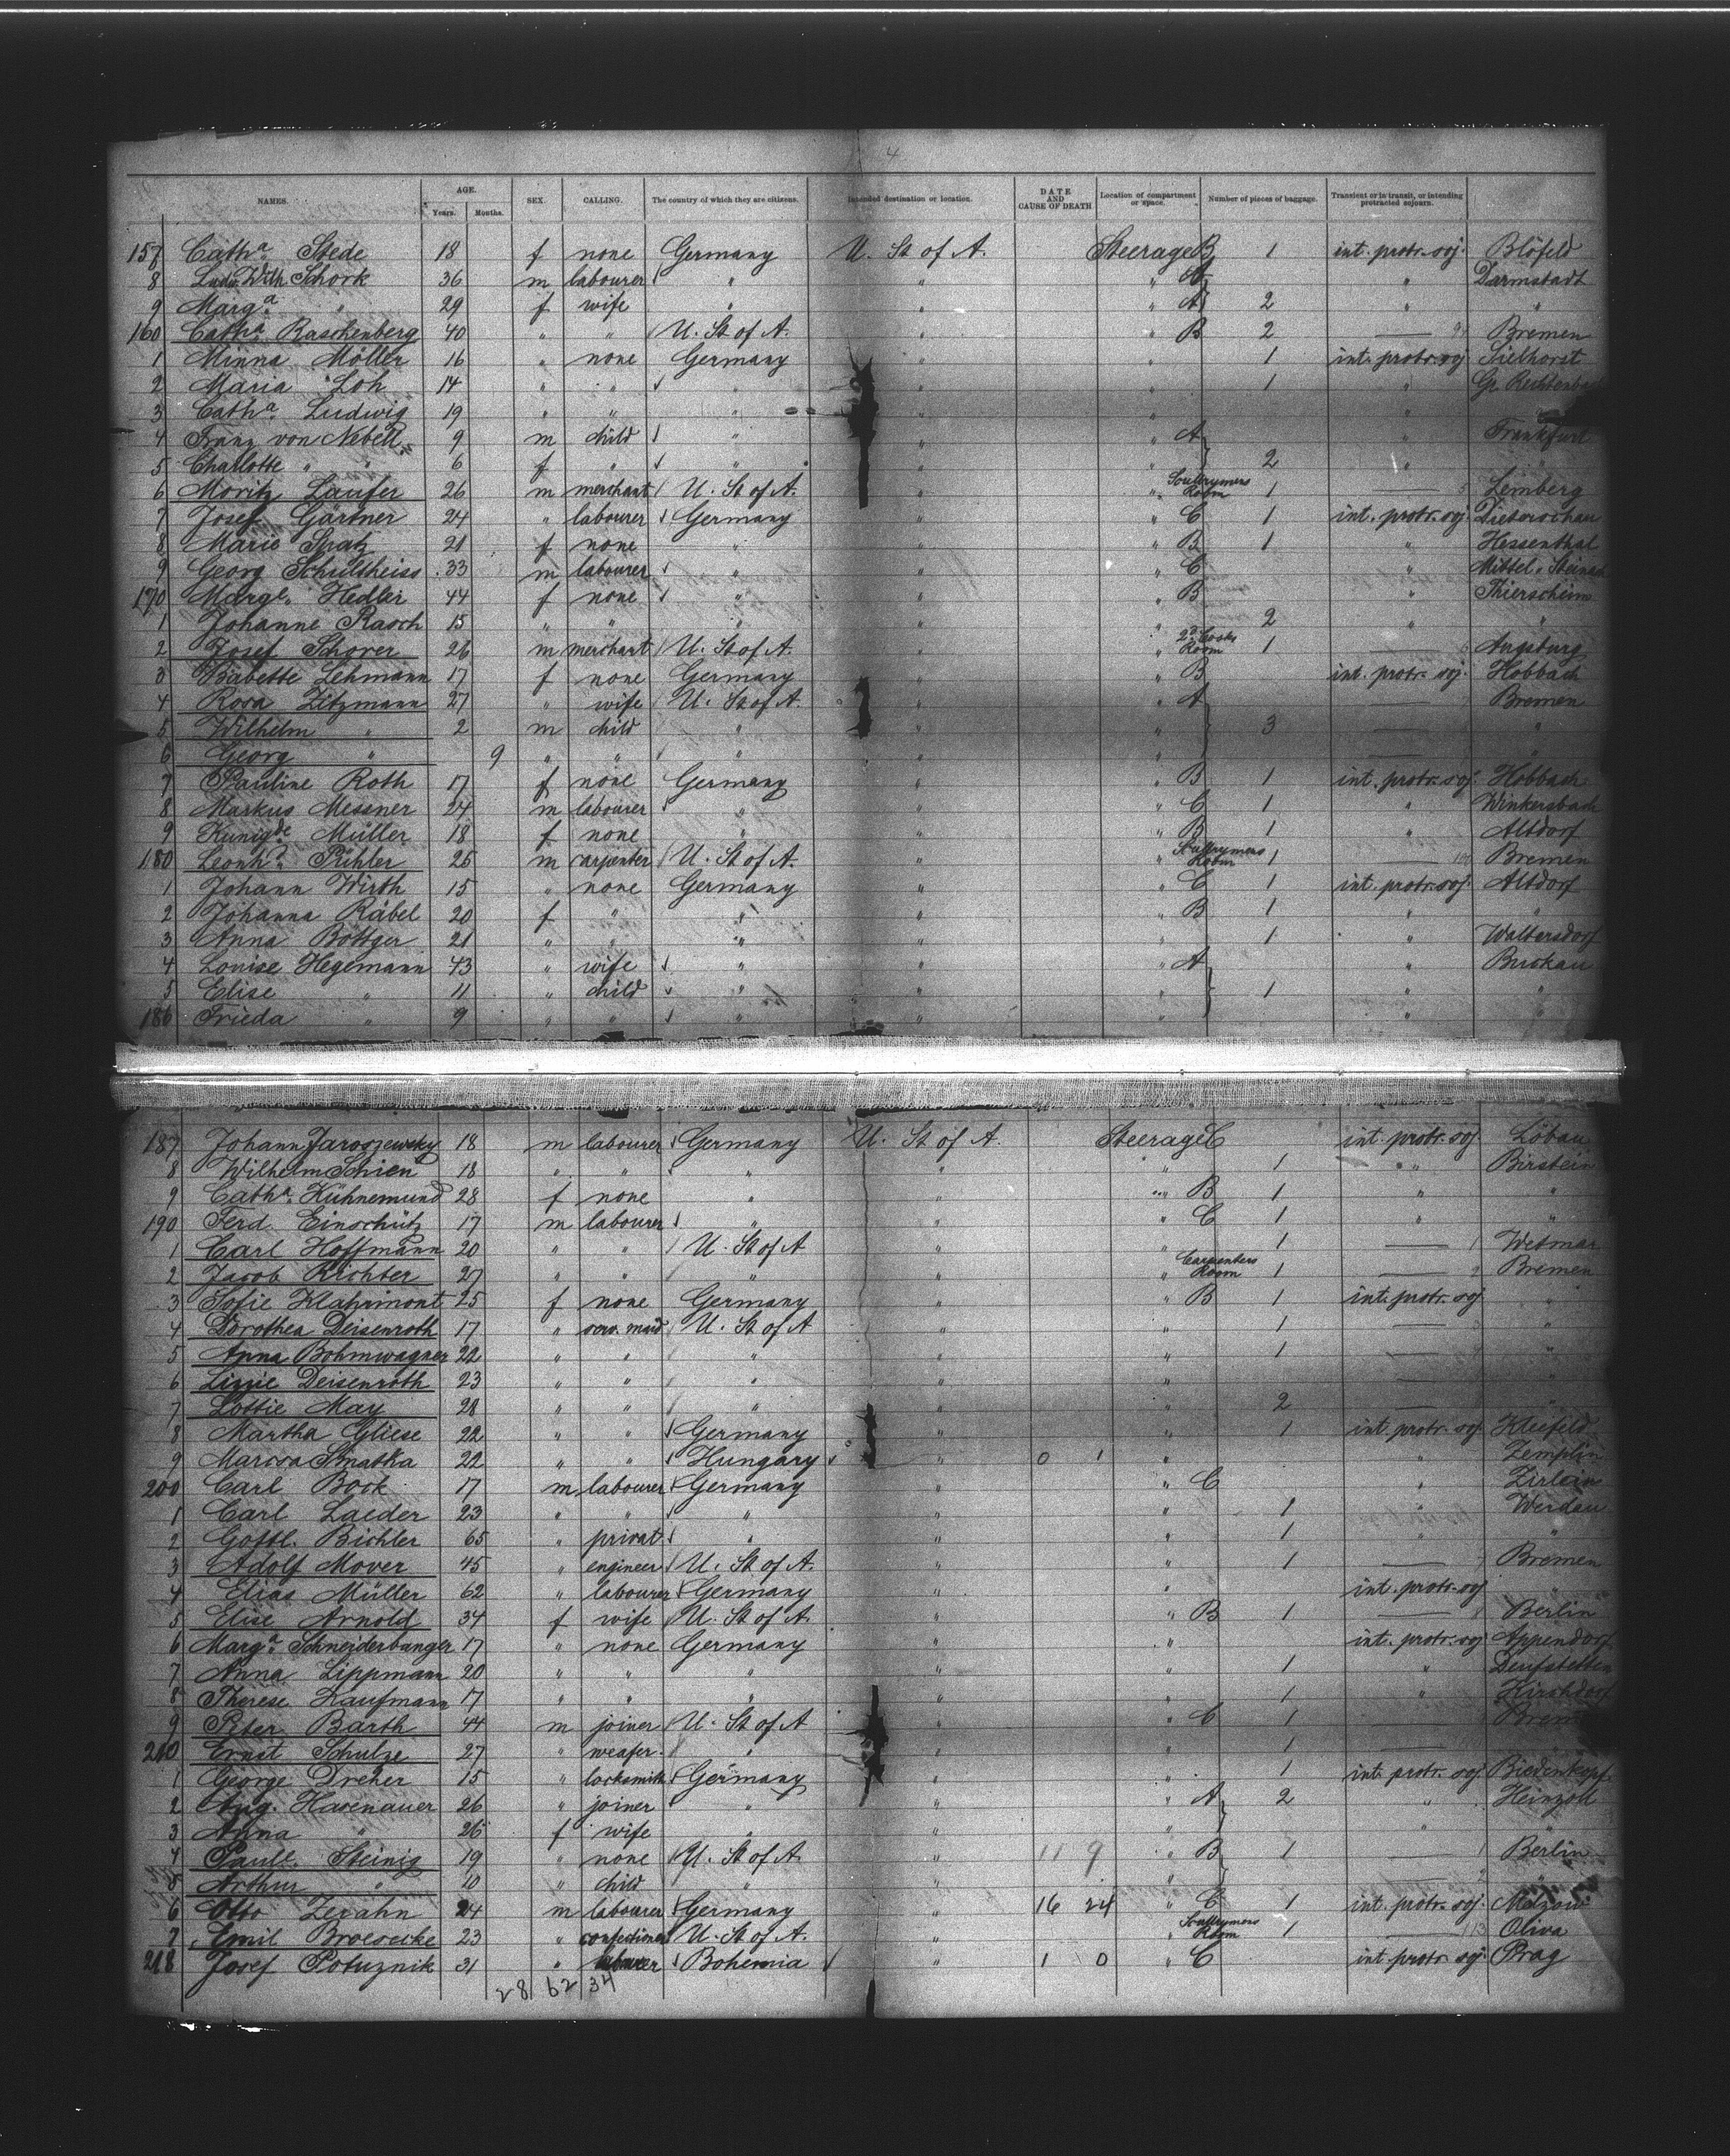 4
NAMES. AGE. Years. Months. SEX. CALLING. The country of which they are citizens. Intended destination or location. DATE AND CAUSE OF DEATH Location of compartment or space. Number of pieces of baggage. Transient or in transit, or intending protracted sojourn.
157 Cath.a Stede 18 f none Germany U. St of A. Steerage B 1 int. protr. soj. Blöfeld
8 Ludw. Wilh. Schork 36 m labourer " " " A " Darmstadt
9 Marg.a " 29 f wife " " " A 2 " "
160 Cath.a Raschenberg 40 " " U. St of A. " " B 2 — Bremen
1 Minna Möller 16 " none Germany " " 1 int. protr. soj. Sielhorst
2 Maria Loh 14 " " " " " 1 " Gr. Rechtenbach
3 Cath.a Ludwig 19 " " " " " "
4 Franz von Nebell 9 m child " " " A " Frankfurt
5 Charlotte " " 6 f " " " " 2 " "
6 Moritz Laufer 26 m merchant U. St of A. " " Scullrymens Room 1 — 5 Lemberg
7 Josef Gärtner 24 " labourer Germany " " C 1 int. protr. soj. Dieterschau
8 Marie Spatz 21 f none " " " B 1 " Hessenthal
9 Georg Schultheiss 33 m labourer " " " C " Mittel. Steinach
170 Marg.e Hedler 44 f none " " " B " Thiersheim
1 Johanne Rasch 15 " " " " " 2 " "
2 Josef Schorer 26 m merchant U. St of A. " " 2d Cooks Room 1 — 6 Augsburg
3 Babette Lehmann 17 f none Germany " " B int. protr. soj. Hobbach
4 Rosa Zitzmann 27 " wife U. St of A. " " A — Bremen
5 Wilhelm " 2 m child " " " 3 — "
6 Georg " 9 " " " " " — "
7 Pauline Roth 17 f none Germany " " B 1 int. protr. soj. Hobbach
8 Markus Messner 24 m labourer " " " C 1 " Winkersbach
9 Kunig.de Müller 18 f none " " " B 1 " Altdorf
180 Leonh.d Pühler 25 m carpenter U. St of A. " " Scullrymens Room 1 — 10 Bremen
1 Johann Wirth 15 " none Germany " " C 1 int. protr. soj. Altdorf
2 Johanna Räbel 20 f " " " " B 1 " "
3 Anna Böttger 21 " " " " " 1 " Waltersdorf
4 Louise Hegemann 43 " wife " " " A " Buckau
5 Elise " 11 " child " " " 1 " "
186 Frieda " 9 " " " " " " "
187 Johann Jaroszewsky 18 m labourer Germany U. St of A. Steerage C int. protr. soj. Löbau
8 Wilhelm Schien 18 " " " " " 1 " Birstein
9 Cath.a Kühnemund 28 f none " " " B 1 " "
190 Ferd. Einschütz 17 m labourer " " " C 1 " "
1 Carl Hoffmann 20 " " U. St of A " " 1 — 1 Weimar
2 Jacob Richter 27 " " " " " Carpenters Room 1 — 2 Bremen
3 Sofie Klahrmont 25 f none Germany " " B 1 int. protr. soj. "
4 Dorothea Deisenroth 17 " serv. maid U. St of A " " 1 — 3 "
5 Anna Bohmwagner 22 " " " " " 1 — "
6 Lizzie Deisenroth 23 " " " " " — "
7 Lottie May 28 " " " " " 2 — "
8 Martha Gliese 22 " " Germany " " 1 int. protr. soj. Kriefeld
9 Marcsa Smatka 22 " " Hungary " 0 1 " " Zemplin
200 Carl Bock 17 m labourer Germany " " C Zirlau
1 Carl Laeder 23 " " " " " 1 " Werdau
2 Gottl. Bichler 65 " privat " " " 1 " "
3 Adolf Mover 45 " engineer U. St of A. " " 1 — 7 Bremen
4 Elias Müller 62 " labourer Germany " " int. protr. soj. "
5 Elise Arnold 34 f wife U. St of A. " " B 1 — 8 Berlin
6 Marg.a Schneiderbanger 17 " none Germany " " int. protr. soj. Appendorf
7 Anna Lippmann 20 " " " " " 1 " Deufstetten
8 Therese Kaufmann 17 " " " " " 1 " Kirchdorf
9 Peter Barth 44 m joiner U. St of A " " C 1 — Bremen
210 Ernst Schulze 27 " weafer " " " 1 — "
1 George Dreher 15 " locksmith Germany " " 1 int. protr. soj. Biedenkopf
2 Aug. Hasenauer 26 " joiner " " " A 2 " Heinzell
3 Anna " 26 f wife " " " " "
4 Paul.e Steinig 19 " none U. St of A. " 11 9 " B 1 — 1 Berlin
5 Arthur " 10 " child " " " — 2 "
6 Otto Zerahn 24 m labourer Germany " 16 24 " C 1 int. protr. soj.
7 Emil Broesecke 23 " confectioner U. St of A. " " Scullrymens Room 1 — 13 Oliva
218 Josef Potuznik 31 " labourer Bohemia " 1 0 " C int. protr. soj. Prag
28 62 34